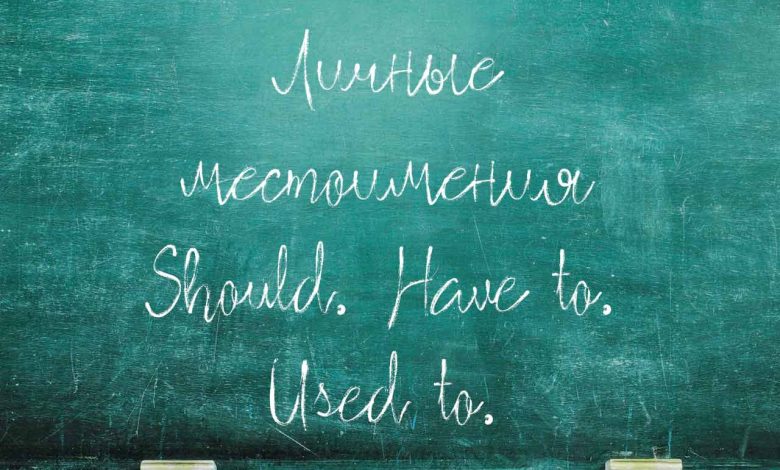 Личные
местоимения
Should. Have to.
Used to.